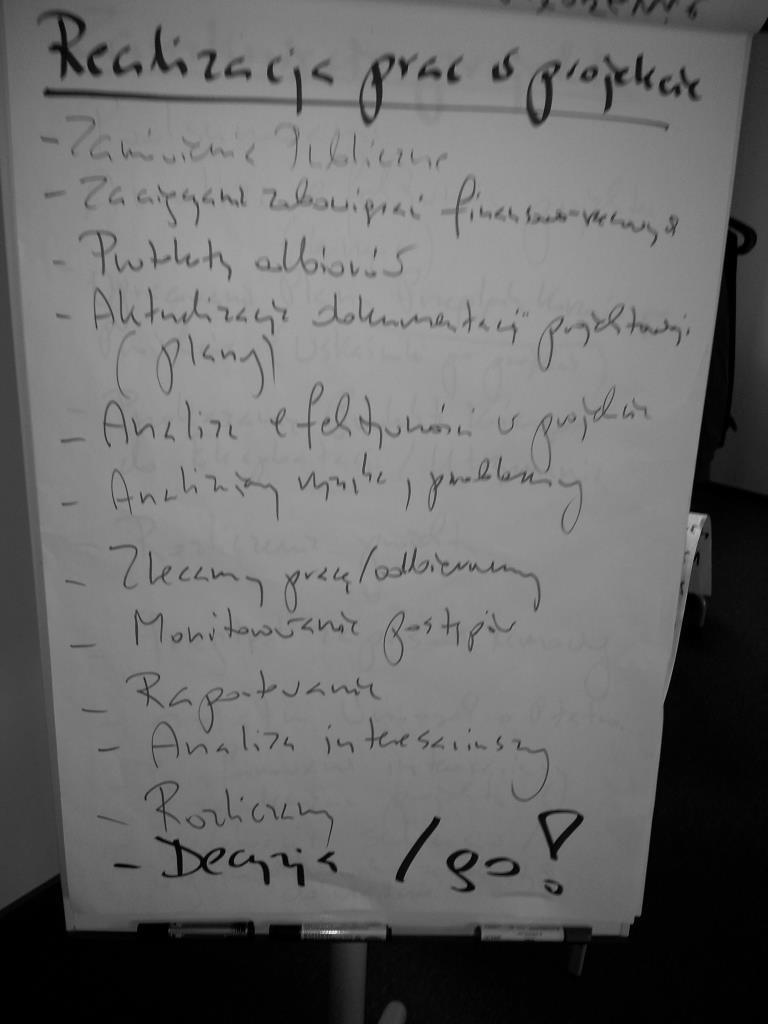 Realizacja prac w projekcie
- Zamówienia Publiczne
- Zaciągamy zobowiązań finansowo-rzeczowych
- Protokoły odbiorów
- Aktualizacja dokumentacji projektowej
(plany)
- Analiza efektywności w projekcie
- Analizujemy ryzyka, problemy
- Zlecamy pracę/odbieramy
- Monitorowanie postępów
- Raportowanie
- Analiza interesariuszy
- Rozliczamy
- Decyzja / go!